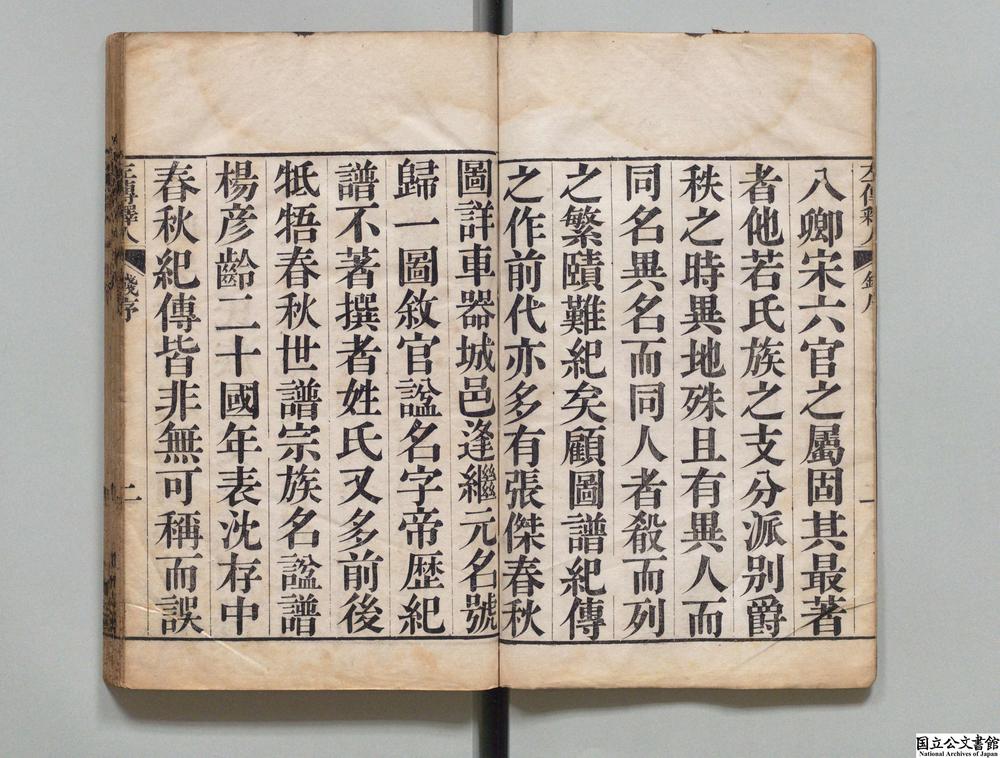 八卿宋六官之屬固其最著
者他若氏族之支分派别爵
秩之時異地殊且有異人而
同名異名而同人者殽而列
之繁賾難紀矣顧圖譜紀傳
之作前代亦多有張傑春秋
圖詳車器城邑逄繼元名號
歸一圖敘官諡名字帝歴紀
譜不著撰者姓氏又多前後
牴牾春秋世譜宗族名諡譜
楊彦齡二十國年表沈存中
春秋紀傳皆非無可稱而誤
左傳釋人
錢序
二
国立公文書館
National Archives of Japan